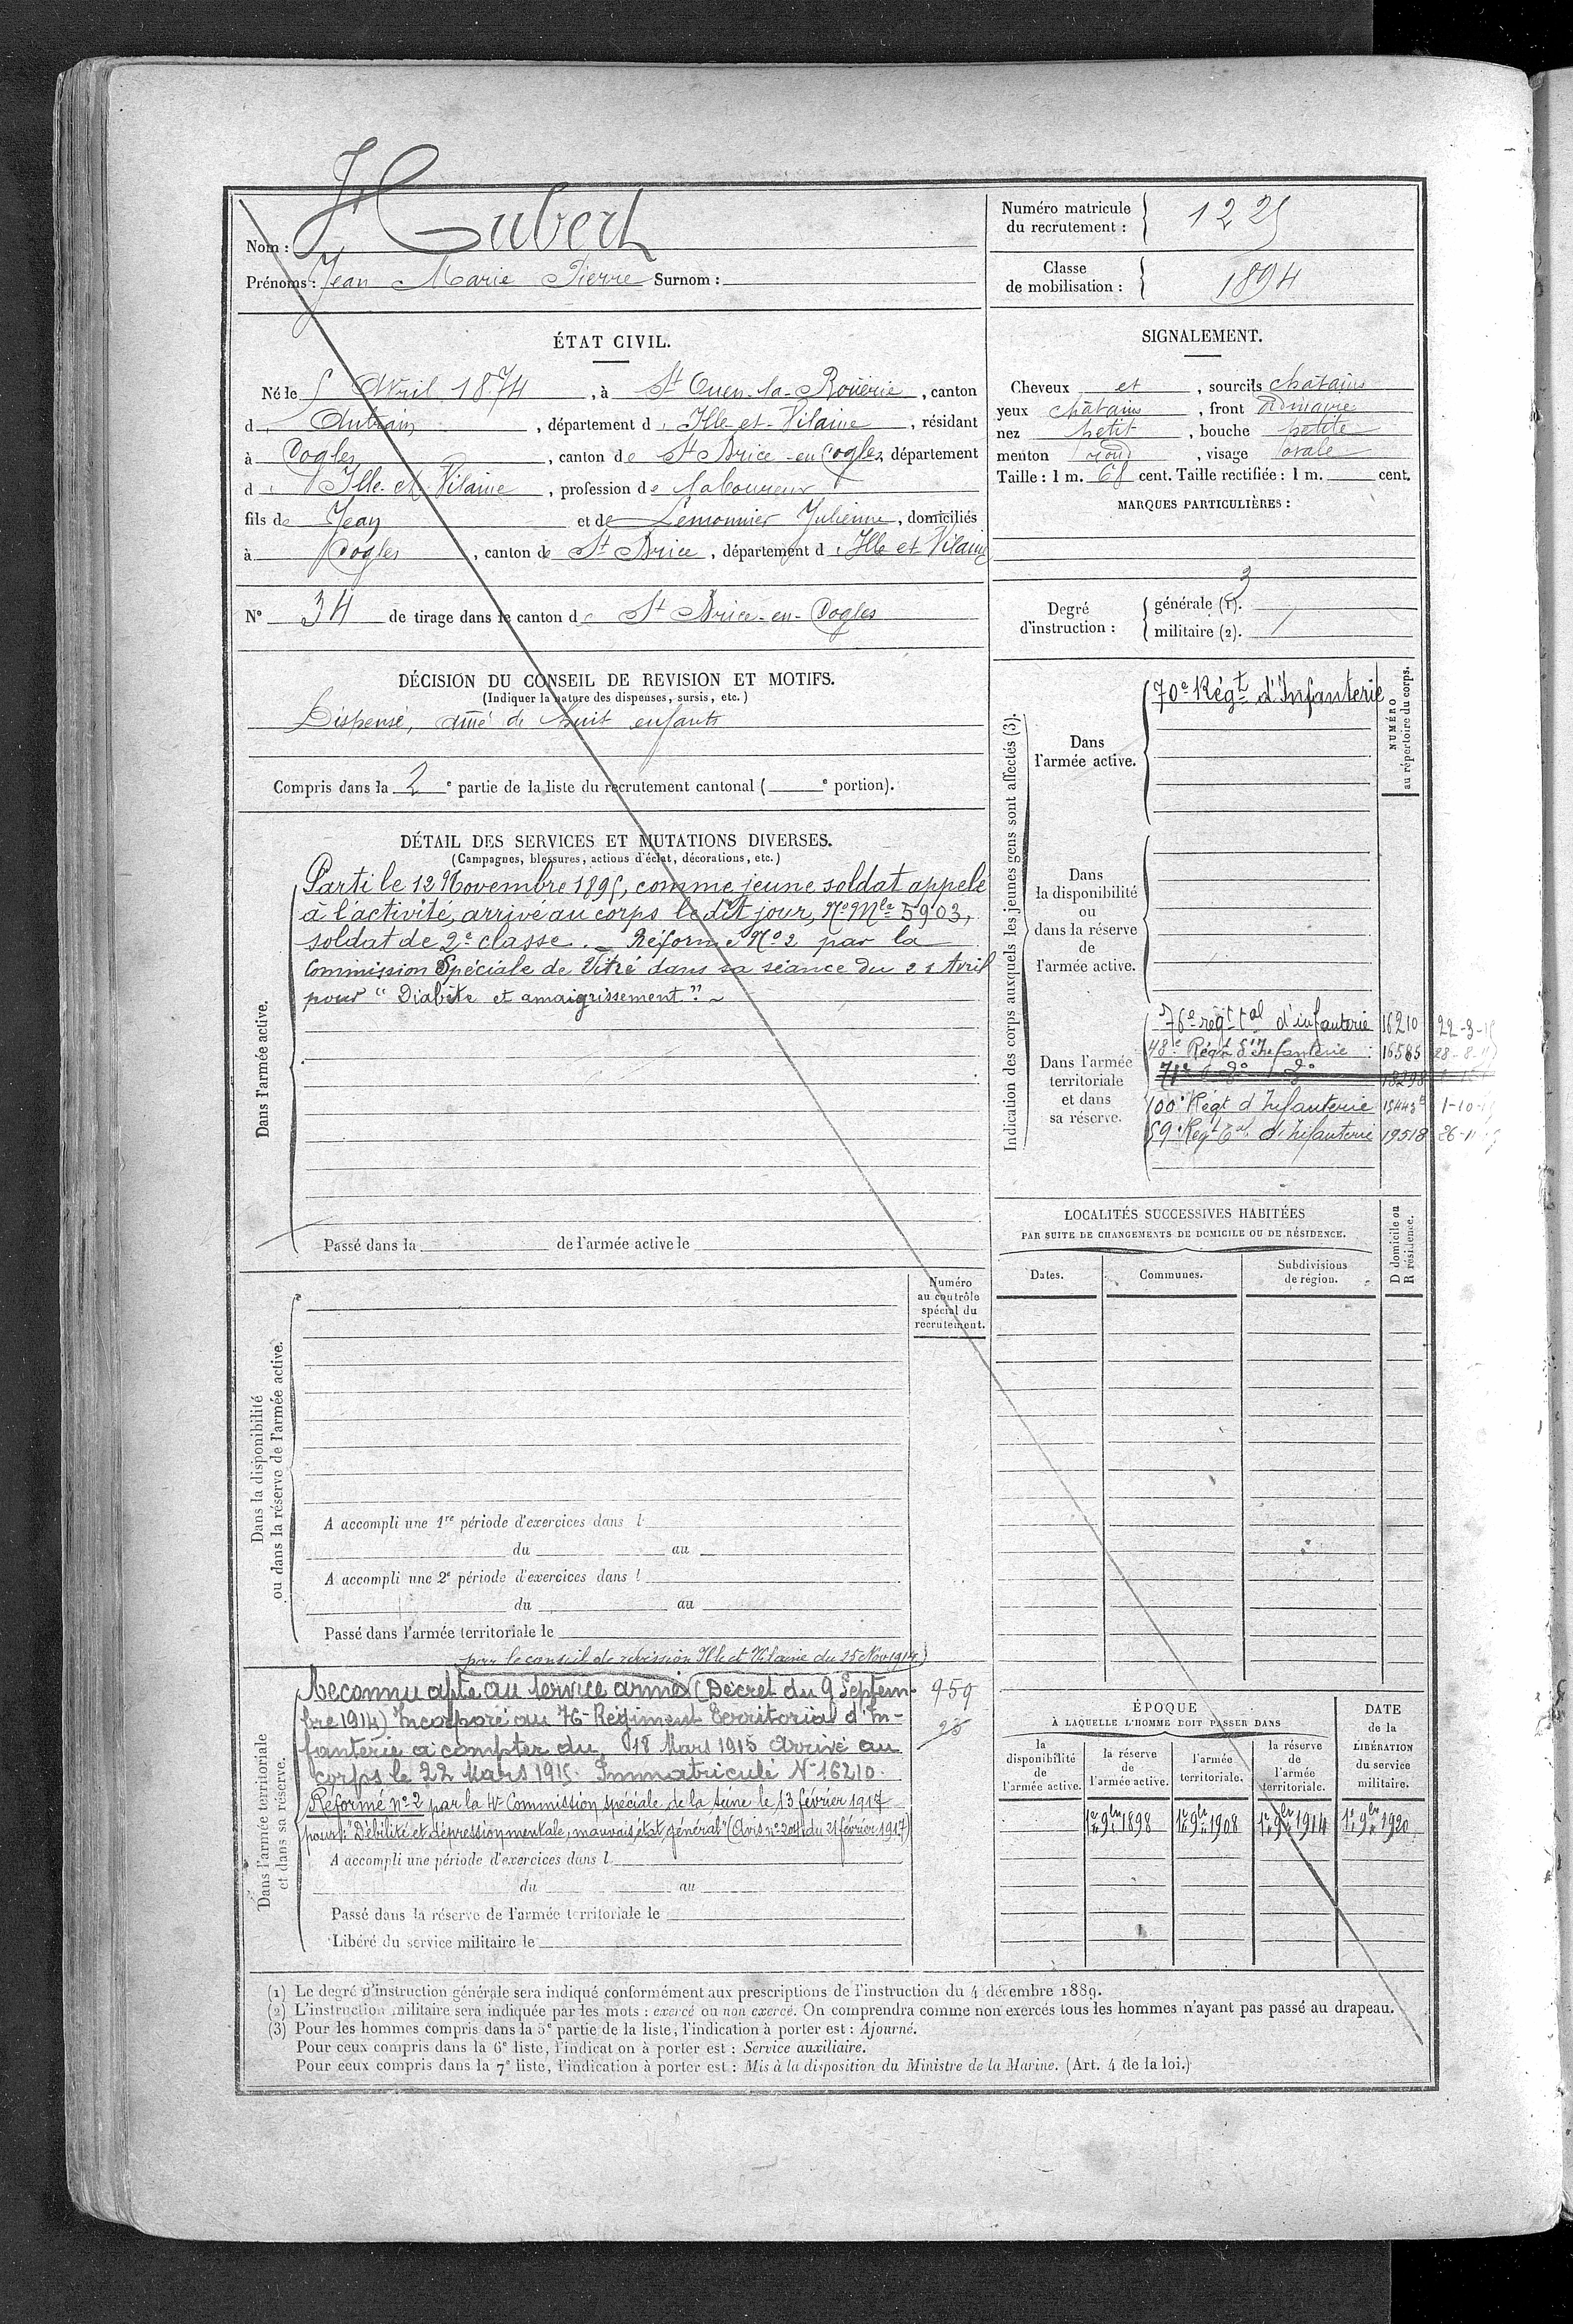 Nom : Hubert
Prénoms : Jean Marie Pierre Surnom :
Numéro matricule du recrutement : 1225
Classe de mobilisation : 1894
ÉTAT CIVIL.
Né le 5 Avril 1874, à St Ouen-la-Rouërie, canton
d'Antrain, département d'Ille-et-Vilaine, résidant
à Cogles, canton de St Brice-en-Cogles, département
d'Ille-et-Vilaine, profession de laboureur
fils de Jean et de Lemonnier Julienne, domiciliés
à Cogles, canton de St Brice, département d'Ille et Vilaine
N° 34 de tirage dans le canton de St Brice-en-Cogles
SIGNALEMENT.
Cheveux et, sourcils châtains
yeux châtains, front ordinaire
nez petit, bouche petite
menton rond, visage ovale
Taille : 1 m. 68 cent. Taille rectifiée : 1 m. cent.
MARQUES PARTICULIÈRES :
Degré d'instruction :
générale (1). 3
militaire (2).
DÉCISION DU CONSEIL DE REVISION ET MOTIFS.
(Indiquer la nature des dispenses, sursis, etc.)
Dispensé, aîné de huit enfants
Compris dans la 2e partie de la liste du recrutement cantonal ( e portion).
DÉTAIL DES SERVICES ET MUTATIONS DIVERSES.
(Campagnes, blessures, actions d'éclat, décorations, etc.)
Dans l'armée active.
Parti le 12 Novembre 1895, comme jeune soldat appelé
à l'activité, arrivé au corps le dit jour, No Mle 5903,
soldat de 2e classe. Réformé No 2 par la
Commission Spéciale de Vitré dans sa séance du 21 Avril
pour "Diabète et amaigrissement".
Passé dans la de l'armée active le
Indication des corps auxquels les jeunes gens sont affectés (3).
NUMÉRO au répertoire du corps.
Dans l'armée active.
70e Régt d'Infanterie
Dans la disponibilité ou dans la réserve de l'armée active.
Dans l'armée territoriale et dans sa réserve.
76e régt tal d'infanterie 16210 22-3-15
48e Régt d'Infanterie 16585 28-8-
71e do do 18298
100e Régt d'Infanterie 15443 1-10-
59e Régt Tal d'Infanterie 19518 26-11
LOCALITÉS SUCCESSIVES HABITÉES
PAR SUITE DE CHANGEMENTS DE DOMICILE OU DE RÉSIDENCE.
Dates. Communes. Subdivisions de région. D domicile ou R résidence.
Numéro au contrôle spécial du recrutement.
Dans la disponibilité ou dans la réserve de l'armée active.
A accompli une 1re période d'exercices dans l
du au
A accompli une 2e période d'exercices dans l
du au
Passé dans l'armée territoriale le
Dans l'armée territoriale et dans sa réserve.
par le conseil de révision Ille et Vilaine du 25 Nov 1914)
Reconnu apte au service armé (Décret du 9 Septem- 959
bre 1914) Incorporé au 76e Régiment Territorial d'In-
fanterie à compter du 18 Mars 1915 Arrivé au
corps le 22 Mars 1915. Immatriculé No 16210.
Réformé no 2 par la 4e Commission spéciale de la Seine le 13 février 1917
pour : "Débilité et dépression mentale, mauvais état général" (Avis no 204 du 21 février 1917)
A accompli une période d'exercices dans l
du au
Passé dans la réserve de l'armée territoriale le
Libéré du service militaire le
ÉPOQUE
À LAQUELLE L'HOMME DOIT PASSER DANS
la disponibilité de l'armée active.
la réserve de l'armée active.
l'armée territoriale.
la réserve de l'armée territoriale.
DATE de la LIBÉRATION du service militaire.
1er 9bre 1898 1er 9bre 1908 1er 9bre 1914 1er 9bre 1920
(1) Le degré d'instruction générale sera indiqué conformément aux prescriptions de l'instruction du 4 décembre 1889.
(2) L'instruction militaire sera indiquée par les mots : exercé ou non exercé. On comprendra comme non exercés tous les hommes n'ayant pas passé au drapeau.
(3) Pour les hommes compris dans la 5e partie de la liste, l'indication à porter est : Ajourné.
Pour ceux compris dans la 6e liste, l'indication à porter est : Service auxiliaire.
Pour ceux compris dans la 7e liste, l'indication à porter est : Mis à la disposition du Ministre de la Marine. (Art. 4 de la loi.)